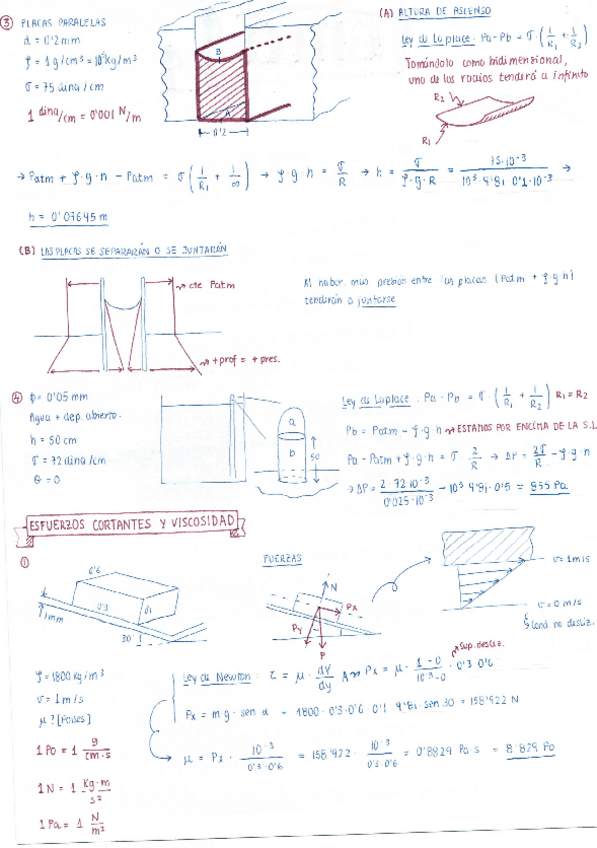 ③ PLACAS PARALELAS
d = 0'2 mm
ρ = 1 g/cm³ = 10³ kg/m³
σ = 75 dina/cm
1 dina/cm = 0'001 N/m
B
A
0'2
(A) ALTURA DE ASCENSO
Ley de Laplace: Pa - Pb = σ · (1/R1 + 1/R2)
Tomándolo como bidimensional,
uno de los radios tenderá a infinito
R2
R1
→ Patm + ρ·g·h - Patm = σ (1/R1 + 1/∞) → ρ g h = σ/R → h = σ/(ρ·g·R) = 75·10⁻³/(10³·9'81·0'1·10⁻³) →
h = 0'07645 m
(B) LAS PLACAS SE SEPARARÁN O SE JUNTARÁN
cte Patm
+prof = +pres.
Al haber más presión entre las placas (Patm + ρ g h)
tenderán a juntarse
④ ϕ = 0'05 mm
Agua + dep. abierto.
h = 50 cm
σ = 72 dina/cm
θ = 0
a
b
50
Ley de Laplace: Pa - Pb = σ · (1/R1 + 1/R2) R1 = R2
Pb = Patm - ρ·g·h → ESTAMOS POR ENCIMA DE LA S.L
Pa - Patm + ρ·g·h = σ · 2/R → ΔP = 2σ/R - ρ·g·h
→ ΔP = 2·72·10⁻³/0'025·10⁻³ - 10³·9'81·0'5 = 855 Pa
ESFUERZOS CORTANTES Y VISCOSIDAD
①
0'6
0'3
0'1
1mm
30°
FUERZAS
N
Px
Py
P
v = 1 m/s
v = 0 m/s
Cond. no desliz.
ρ = 1800 kg/m³
v = 1 m/s
μ? [Poises]
1 Po = 1 g/cm·s
1 N = 1 kg·m/s²
1 Pa = 1 N/m²
Sup. desliz.
Ley de Newton: τ = μ · dV/dy · A → Px = μ · (1-0)/(10⁻³-0) · 0'3·0'6
Px = m·g·sen α = 1800·0'3·0'6·0'1·9'81·sen 30 = 158'922 N
→ μ = Px · 10⁻³/(0'3·0'6) = 158'922 · 10⁻³/(0'3·0'6) = 0'8829 Pa·s = 8'829 Po